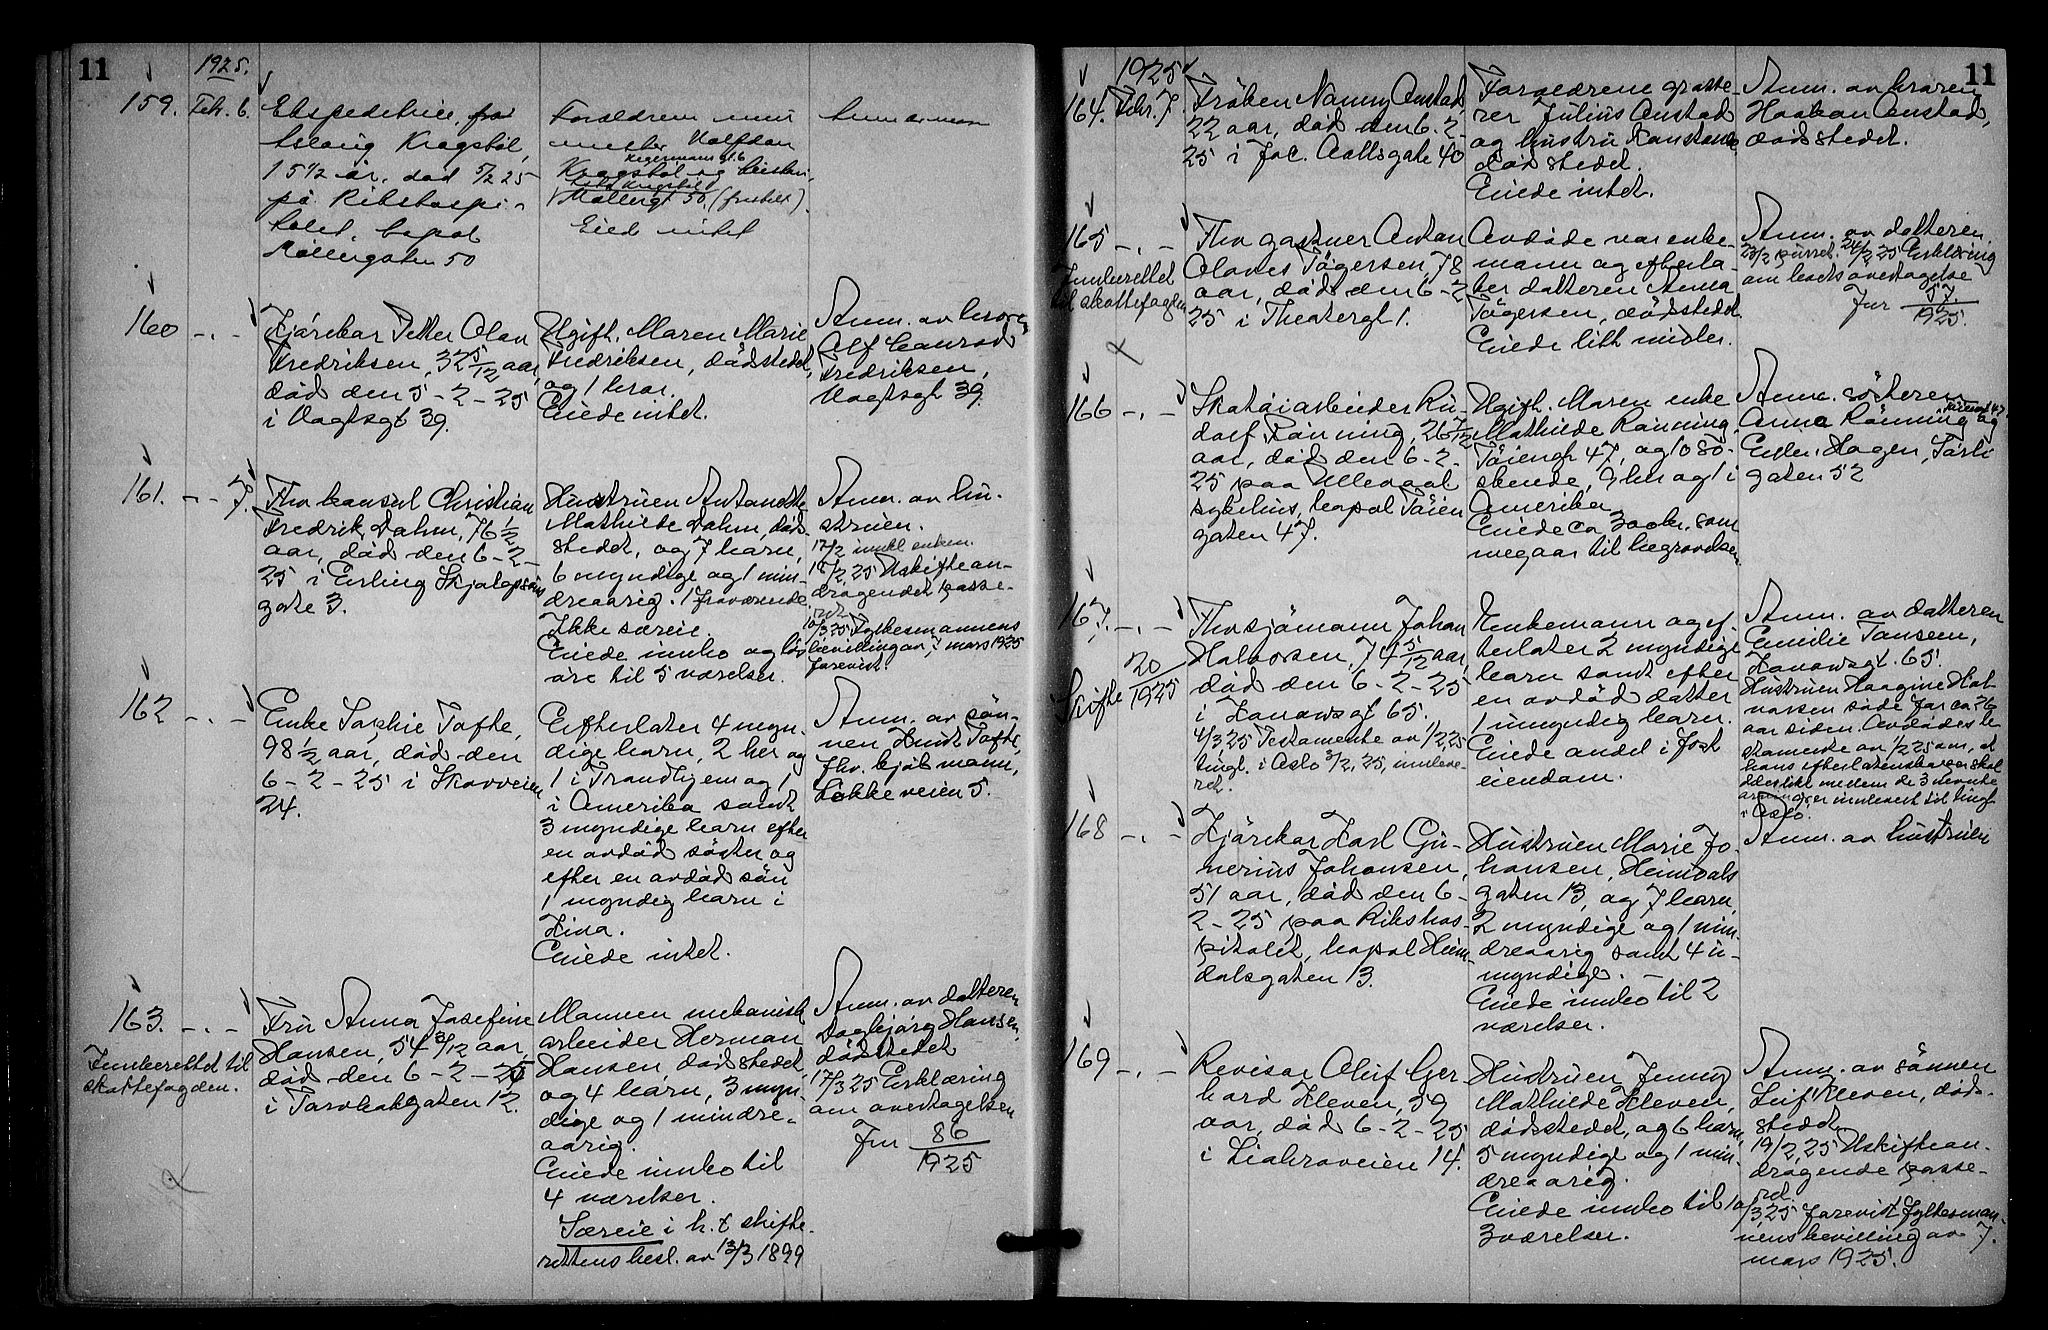 11
1925.
159. Febr. 6.
Ekspeditrice
Aslaug Kragsbøl,
15 1/2 år, død 5/2 25
på Rikshospi-
talet, bopæl
Møllergaten 50
Forældrene mur
mester Halfdan
Kragsbøl og hustru
Møllergt 50, (fraskilt).
Eied intet
160 -.-
Kjørekar Petter Olav
Fredriksen, 32 5/12 aar,
død den 5-2-25
i Vogtsgt 39.
Ugift. Moren Marie
Fredriksen, dødstedet,
og 1 bror.
Eiede intet.
Anm. av broren
Alf Conrad
Fredriksen,
Vogtsgt 39.
161. -.- 7.
Fhv konsul Christian
Fredrik Dahm, 76 1/2
aar, død den 6-2-
25 i Erling Skjalgsøns
gate 3.
Hustruen Antonette
Mathilde Dahm, død-
stedet, og 7 barn,
6 myndige og 1 min-
dreaarig. 1 fraværende
Ikke særeie
Eiede innbo og løs
øre til 5 værelser.
Anm. av hu-
struen.
17/2 innk enken.
19/2 25 Uskiftean-
dragendet passe-
ret
10/3 25 Fylkesmannens
bevilling av 7 mars 1925
forevist.
162 -.-
Enke Sophie Tofte,
98 1/2 aar, død den
6-2-25 i Skovveien
24.
Efterlater 4 myn-
dige barn, 2 her og
1 i Trondhjem og 1
i Amerika samt
3 myndige barn efter
en avdød søster og
efter en avdød søn
1 myndig barn i
Kina.
Eiede intet.
Anm. av søn-
nen Knut Tofte,
fhv. kjøbmann,
Løkkeveien 5.
163. -.-
Innberettet til
skattefogden.
Fru Anna Josefine
Hansen, 54 3/12 aar,
død den 6-2-25
i Torvbakgaten 12.
Mannen mekanisk
arbeider Herman
Hansen, dødstedet
og 4 barn, 3 myn-
dige og 1 mindre-
aarig.
Eiede innbo til
4 værelser.
Særeie i h.t skifte-
rettens besl. av 13/3 1899
Anm. av datteren
Dagbjørg Hansen,
dødstedet
17/3 25 Erklæring
om overtagelsen
Jnr 86/1925
11
1925
164. Febr. 7.
Frøken Nanny Anstad
22 aar, død den 6-2-
25 i Jac. Aallsgate 40
Forældrene grosse-
rer Julius Anstad
og hustru Konstance
dødstedet.
Eiede intet.
Anm. av broren
Haakon Anstad,
dødstedet.
165 -.-
Innberettet
til skattefogden
Fhv gartner Anton
Olaves Tøgersen, 78
aar, død den 6-2
25 i Theatergt 1.
Avdøde var enke-
mann og efterla-
ter datteren Anna
Tøgersen, dødstedet
Eiede litt midler.
Anm. av datteren
23/2 purret. 24/2 25 Erklæring
om boets overtagelse
Jnr 57/1925.
166 -.-
Skotøiarbeider Ru-
dolf Rønning, 26 7/12
aar, død den 6-2-
25 paa Ullevaal
sykehus, bopæl Tøien
gaten 47.
Ugift. Moren enke
Mathilde Rønning,
Tøiengt 47, og 10 sø-
skende, 9 her og 1 i
Amerika
Eiede ca 300 kr. som
megaar til begravelsen
Anm. søsteren
Anna Rønning og
Hagen,
gaten 52
167. -.-
Skifte 20/1925
Fhv sjømann Johan
Halvorsen, 74 5/12 aar,
død den 6-2-25
i Hanowsgt 65.
4/3 25 Testamente av 1/2 25
tingl. i Oslo 3/2 25, innleve-
ret.
Enkemann og ef-
terlater 2 myndige
barn samt efter
en avdød datter
1 umyndig barn.
Eiede andel i fast
eiendom.
Anm. av datteren
Emilie Tansem,
Hanowsgt. 65.
Hustruen Haagine Hal-
vorsen døde for ca 26
aar siden. Avdødes te
stamente av 1/2 25 om, at
hans efterladenskaper skal
deles likt mellem de 3 nevnte
arvinger innlevert til tingl
i Oslo.
168 -.-
Kjørekar Karl Gu-
nerius Johansen,
51 aar, død den 6-
2-25 paa Rikshos-
pitalet, bopæl Heim-
dalsgaten 13.
Hustruen Marie Jo-
hansen, Heimdals
gaten 13, og 7 barn,
2 myndige og 1 min-
dreaarig samt 4 u-
myndige.
Eiede innbo til 2
værelser.
Anm. av hustruen
169 -.-
Revisor Oluf Ger
hard Kleven, 59
aar, død 6-2-25
i Liabroveien 14.
Hustruen Jenny
Mathilde Kleven,
dødstedet, og 6 barn,
5 myndige og 1 min-
dreaarig.
Eiede innbo til
3 værelser.
Anm. av sønnen
Leif Kleven, død-
stedet
19/2 25 Uskiftean-
dragende passe-
ret.
10/3 25 Forevist Fylkesman-
nens bevilling av 7.
mars 1925.